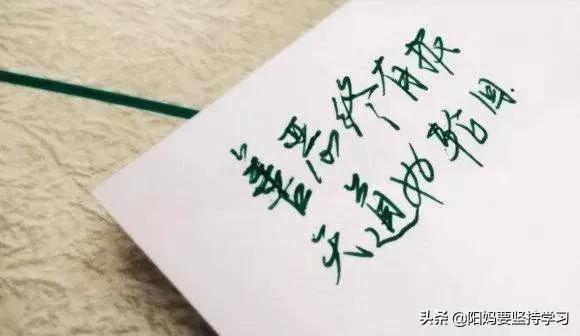 善恶终有报
天道好轮回
头条 @阳妈要坚持学习